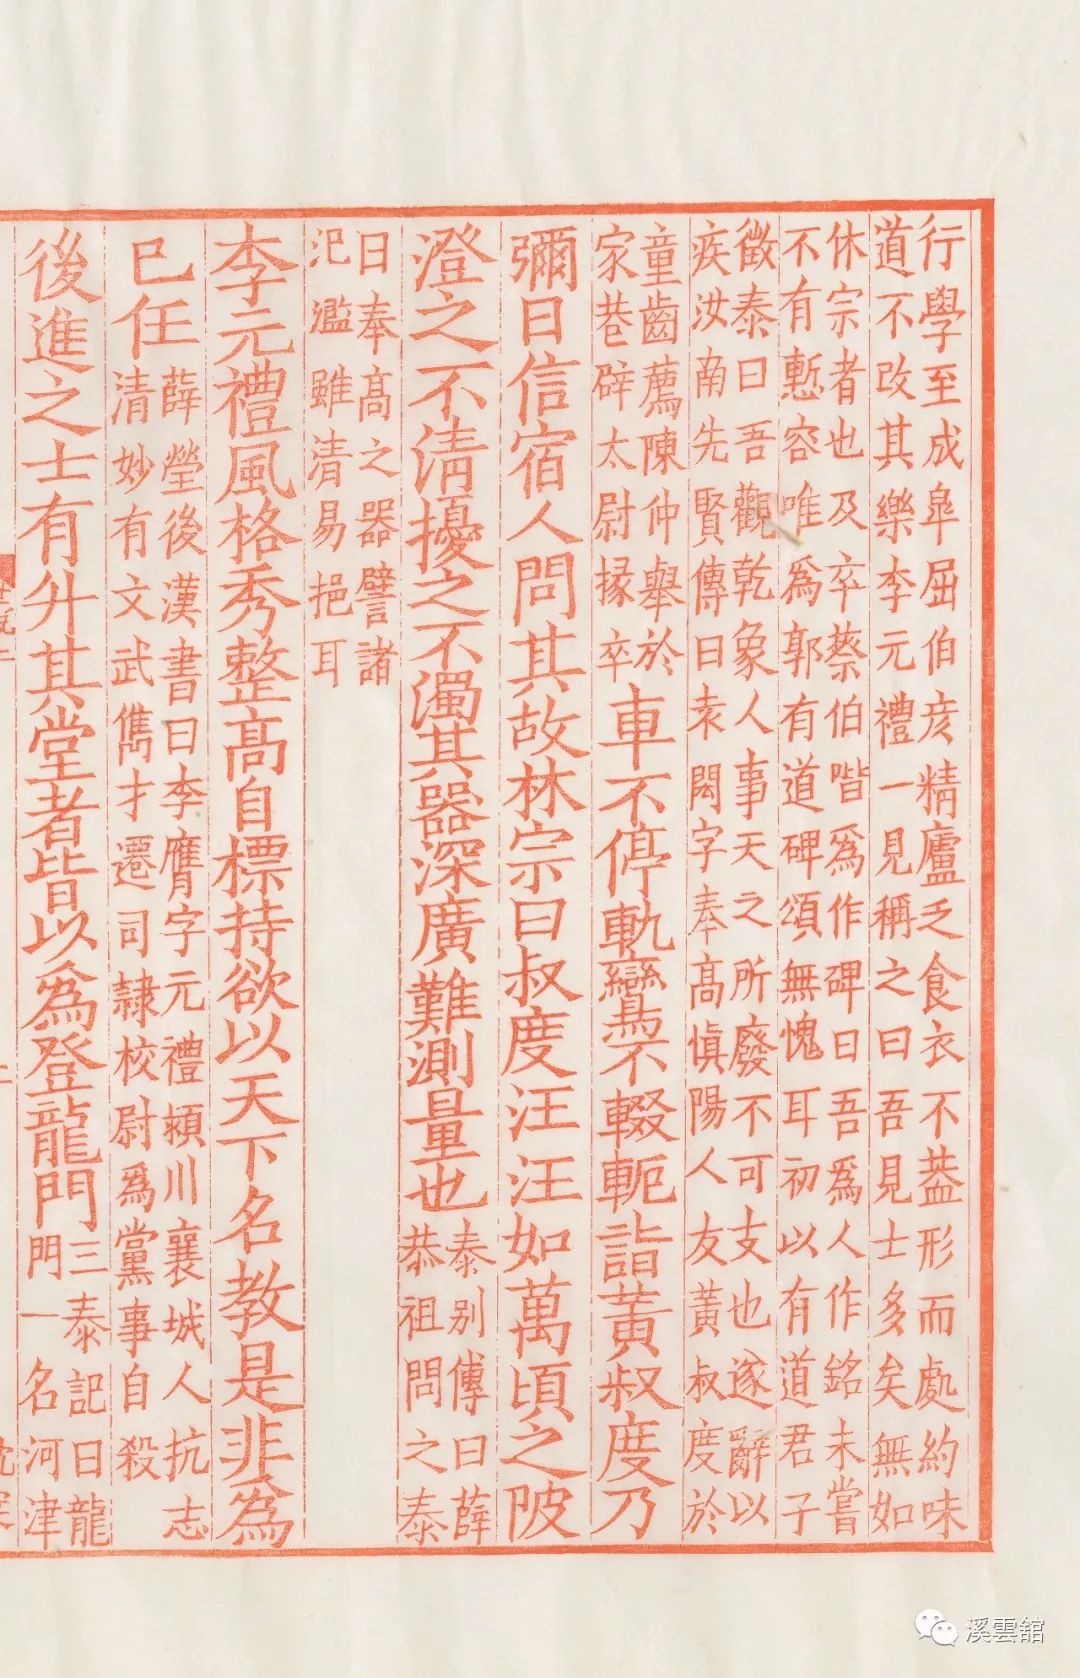 行學至成皐屈伯彦精廬乏食衣不葢形而處約味
道不改其樂李元禮一見稱之曰吾見士多矣無如
林宗者也及卒蔡伯喈爲作碑曰吾爲人作銘未嘗
不有慙容唯爲郭有道碑頌無愧耳初以有道君子
徵泰曰吾觀乾象人事天之所廢不可支也遂辭以
疾汝南先賢傳曰袁閎字奉髙愼陽人友黃叔度於
童齒薦陳仲舉於
家巷辟太尉掾卒
車不停軌鸞不輟軛詣黃叔度乃
彌日信宿人問其故林宗曰叔度汪汪如萬頃之陂
澄之不清擾之不濁其器深廣難測量也
泰别傳曰薛
恭祖問之泰
曰奉髙之器譬諸
汜濫雖清易挹耳
李元禮風格秀整髙自標持欲以天下名教是非爲
已任
薛瑩後漢書曰李膺字元禮頴川襄城人抗志
清妙有文武儁才遷司隸校尉爲黨事自殺
後進之士有升其堂者皆以爲登龍門
三泰記曰龍
門一名河津
溪雲舘